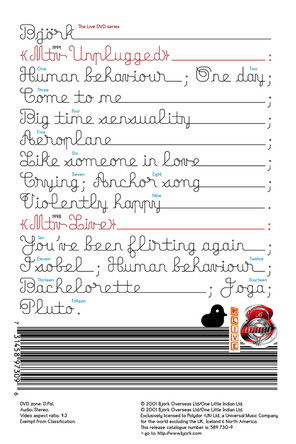 Björk The Live DVD series
{(Mtv Unplugged)} 1994 :
One Two
Human behaviour ; One day ;
Three
Come to me ;
Four
Big time sensuality ;
Five
Aeroplane ;
Six
Like someone in love ;
Seven Eight
Crying ; Anchor song ;
Nine
Violently happy .
{(Mtv Live)} 1998 :
Ten
You've been flirting again ;
Eleven Twelve
Isobel ; Human behaviour ;
Thirteen Fourteen
Bachelorette ; Joga ;
Fifteen
Pluto .
LIVE
DVD zone: 0 Pal.
Audio: Stereo.
Video aspect ratio: 4:3
Exempt from Classification.
© 2001 Björk Overseas Ltd/One Little Indian Ltd.
℗ 2001 Björk Overseas Ltd/One Little Indian Ltd.
Exclusively licensed to Polydor (UK) Ltd, a Universal Music Company
for the world excluding the UK, Iceland & North America.
This release catalogue number is: 589 730-9
→ go to: http://www.bjork.com